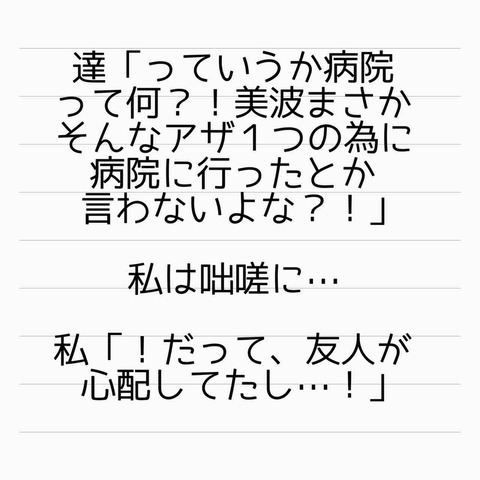 達「っていうか病院
って何？！美波まさか
そんなアザ１つの為に
病院に行ったとか
言わないよな？！」
私は咄嗟に…
私「！だって、友人が
心配してたし…！」